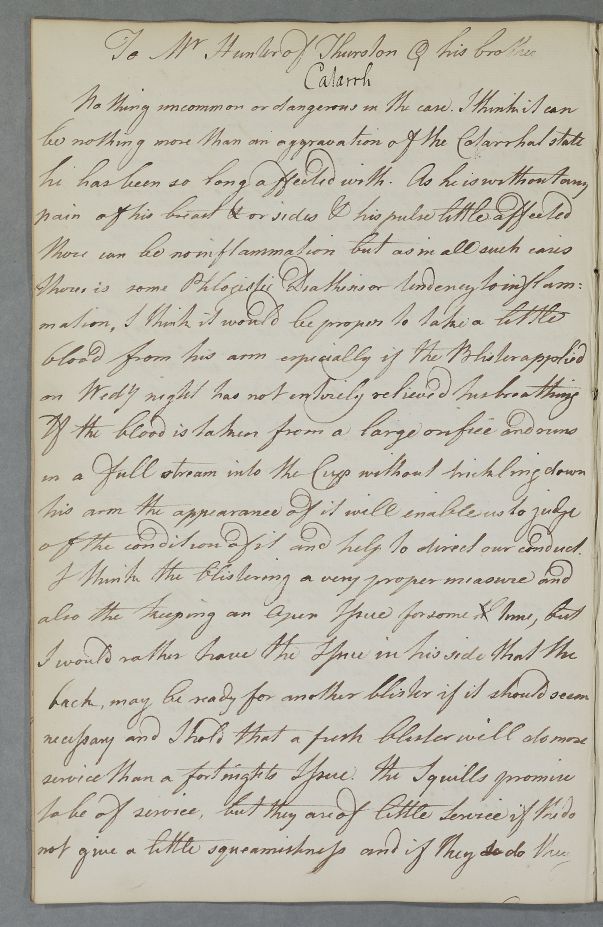 To Mr Hunter of Thurston @ his brother
Catarrh
Nothing uncommon or dangerous in the case. I think it can
be nothing more than an aggravation of the Catarrhal state
he has been so long affected with. As he is without any
pain of his breast & or sides & his pulse little affected
there can be no inflammation but as in all such cases
there is some Phlogistic Diathesis or tendency to inflam:
mation, I think it would be proper to take a little
blood from his arm especially if the Blister applied
on Wedy night has not entirely relieved his breathing
If the blood is taken from a large orifice and runs
in a full stream into the Cups without trickling down
his arm the appearance of it will enable us to judge
of the condition of it and help to direct our conduct.
I think the blistering a very proper measure and
also the keeping an open Issue for some time, but
I would rather have the Issue in his side that the
back, may be ready for another blister if it should seem
necessary and I hold that a fresh blister will do more
service than a fortnights Issue. the Squills promise
to be of service, but they are of little service if the do
not give a little squeamishness and if they do they